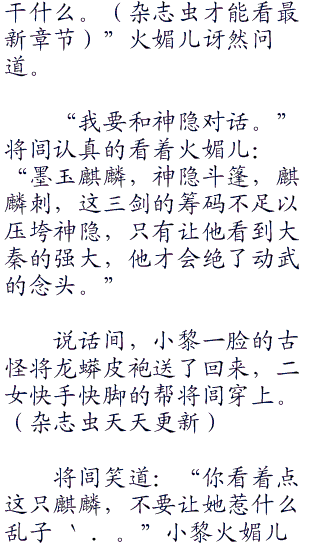 干什么。（杂志虫才能看最
新章节）”火媚儿讶然问
道。
“我要和神隐对话。”
将闾认真的看着火媚儿：
“墨玉麒麟，神隐斗篷，麒
麟刺，这三剑的筹码不足以
压垮神隐，只有让他看到大
秦的强大，他才会绝了动武
的念头。”
说话间，小黎一脸的古
怪将龙蟒皮袍送了回来，二
女快手快脚的帮将闾穿上。
（杂志虫天天更新）
将闾笑道：“你看着点
这只麒麟，不要让她惹什么
乱子 丶．。”小黎火媚儿